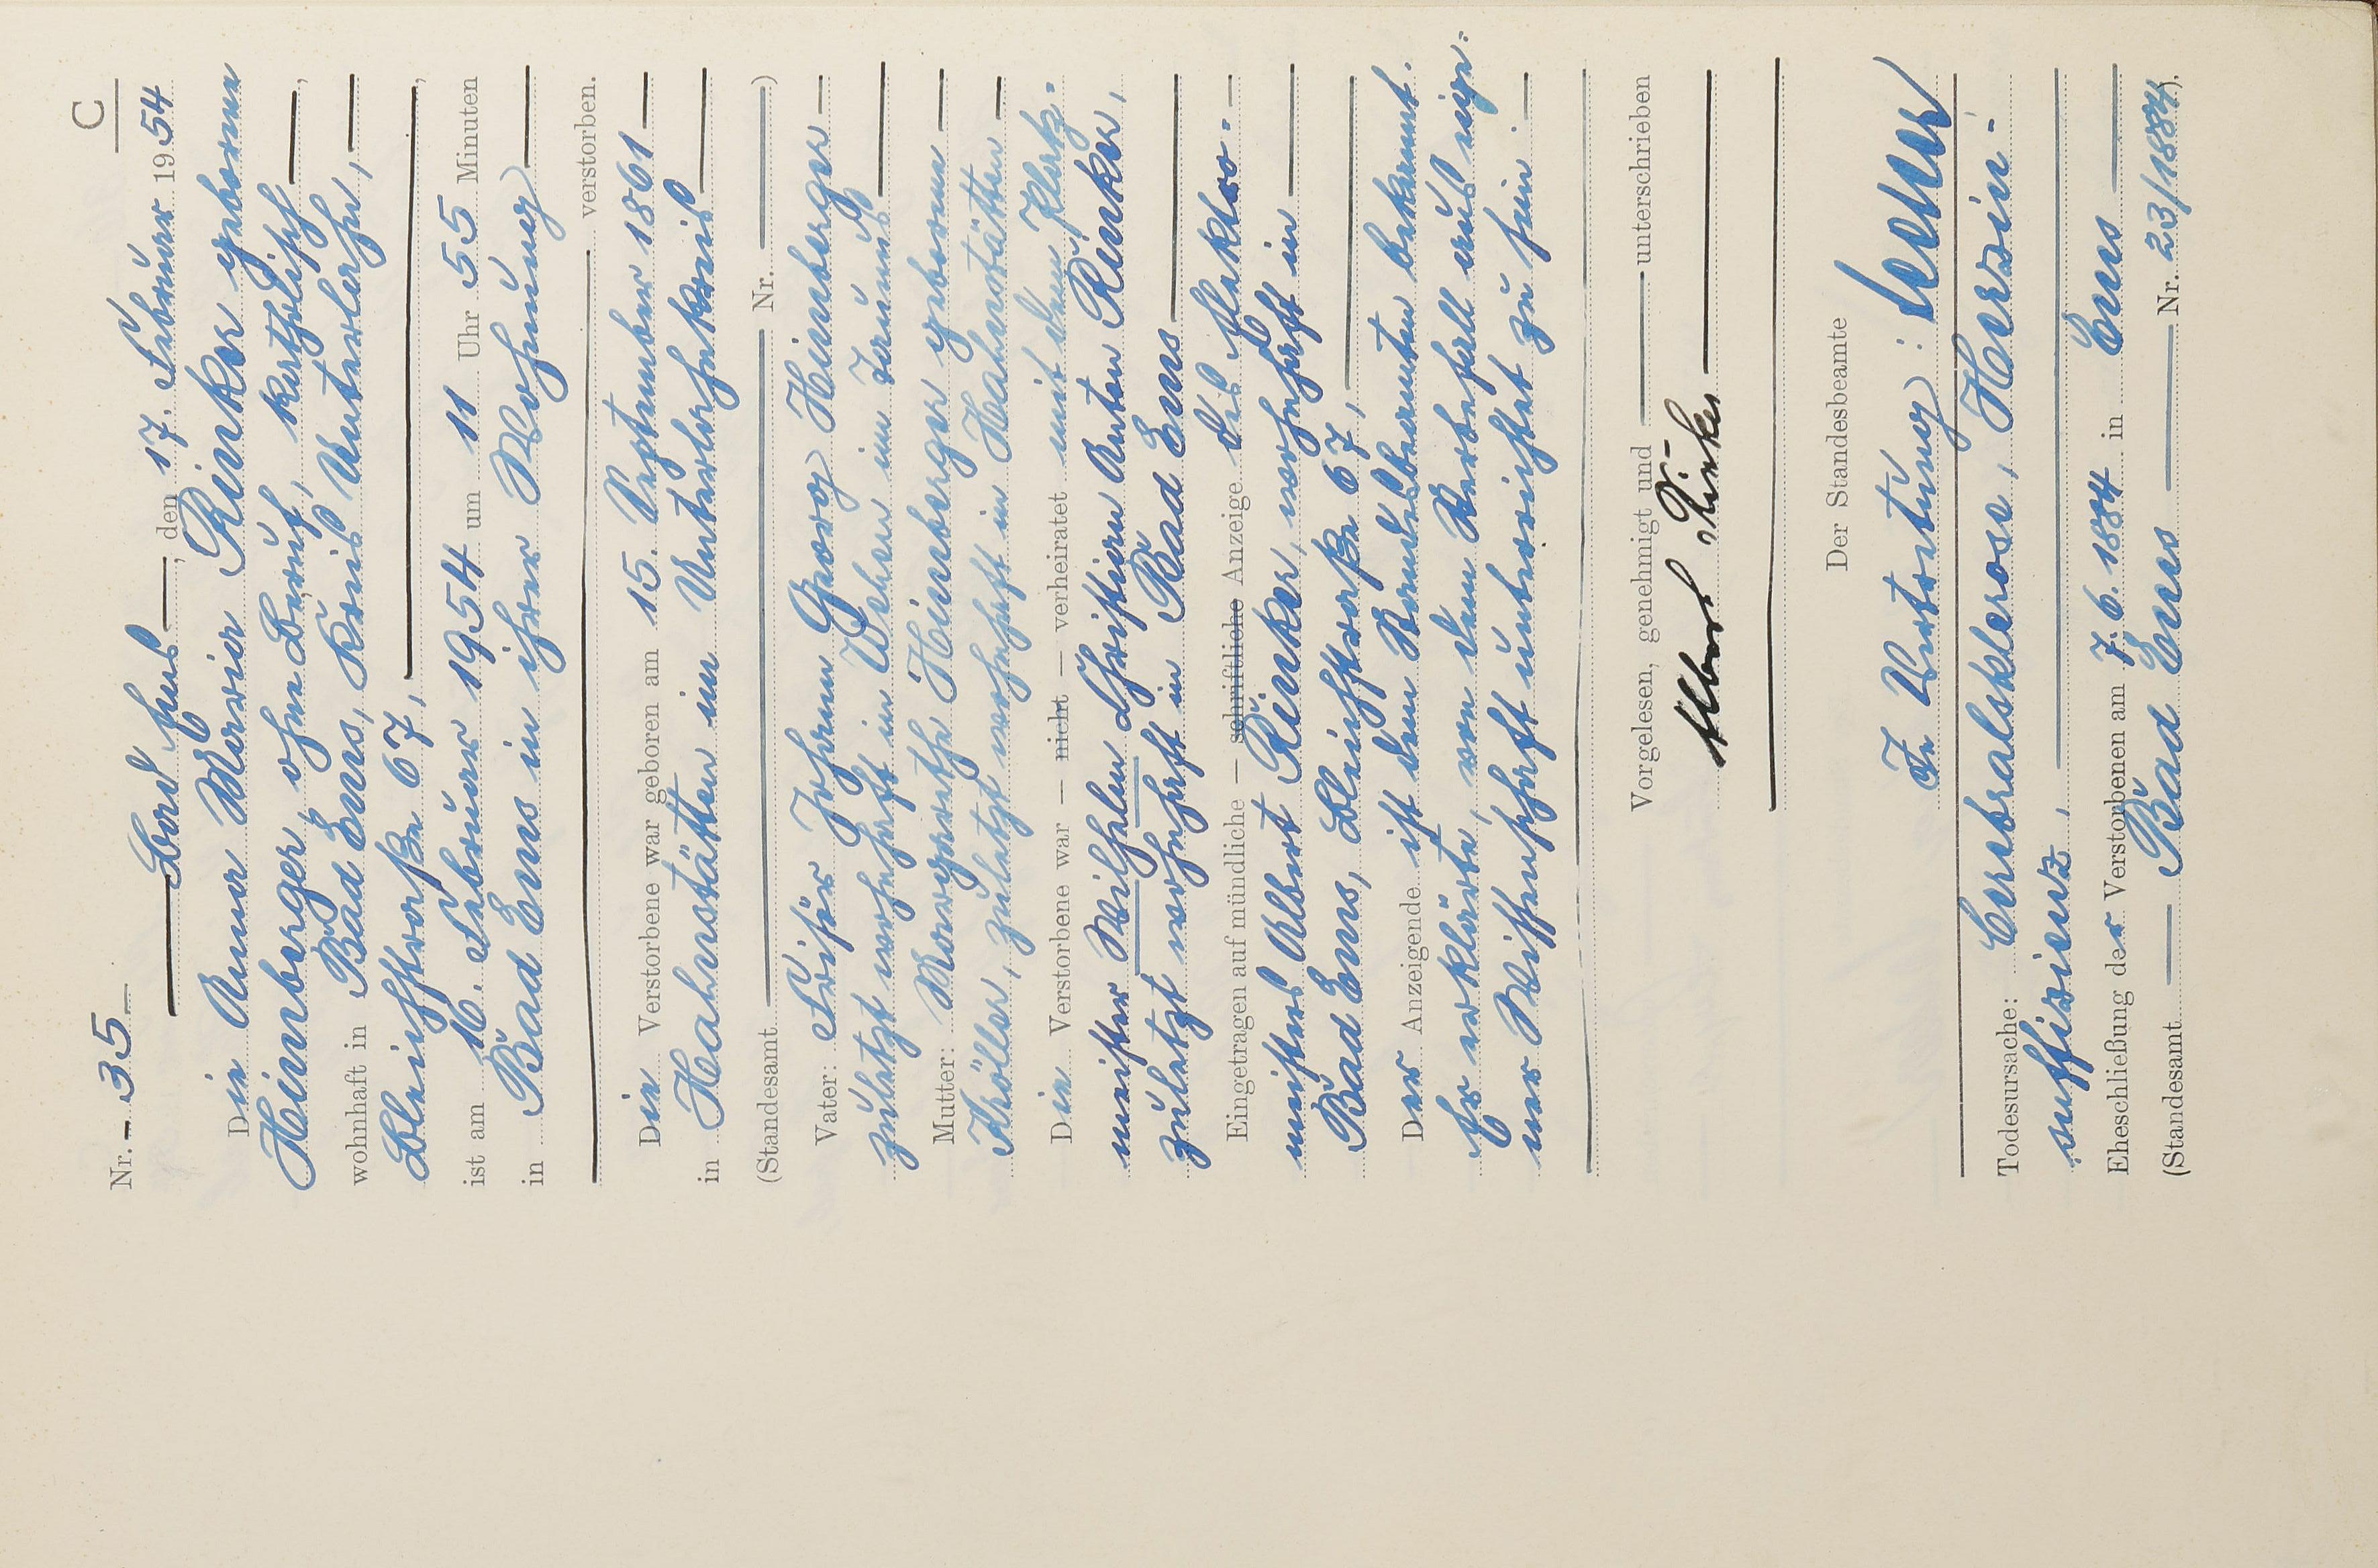 C
Nr. 35
Bad Ems, den 17. Februar 1954
Die Anna Maria Rinker geborene
Heimberger, ohne Beruf, katholisch,
wohnhaft in Bad Ems, Kreis Unterlahn,
Bleichstraße 67,
ist am 16. Februar 1954 um 11 Uhr 55 Minuten
in Bad Ems in ihrer Wohnung
verstorben.
Die Verstorbene war geboren am 15. September 1861
in Hahnstätten im Unterlahnkreis
(Standesamt Nr. )
Vater: Johann Georg Heimberger
zuletzt wohnhaft in Wehen im Taunus
Mutter: Margarethe Heimberger geborene
Kröller, zuletzt wohnhaft in Hahnstätten
Die Verstorbene war — nicht — verheiratet mit dem
meister Wilhelm Christian Anton Rinker,
zuletzt wohnhaft in Bad Ems
Eingetragen auf mündliche — schriftliche Anzeige des Elektro-
meisters Albert Rinker, wohnhaft in
Bad Ems, Bleichstraße 67,
Der Anzeigende ist dem Standesbeamten bekannt.
Er erklärte, von dem Sterbefall aus eige-
ner Wissenschaft unterrichtet zu sein
Vorgelesen, genehmigt und unterschrieben
Albert Rinker
Der Standesbeamte
In Vertretung:
Todesursache: Cerebralsklerose, Herzin-
suffizienz,
Eheschließung der Verstorbenen am 7. 6. 1884 in Ems
(Standesamt Bad Ems Nr. 23/1884).